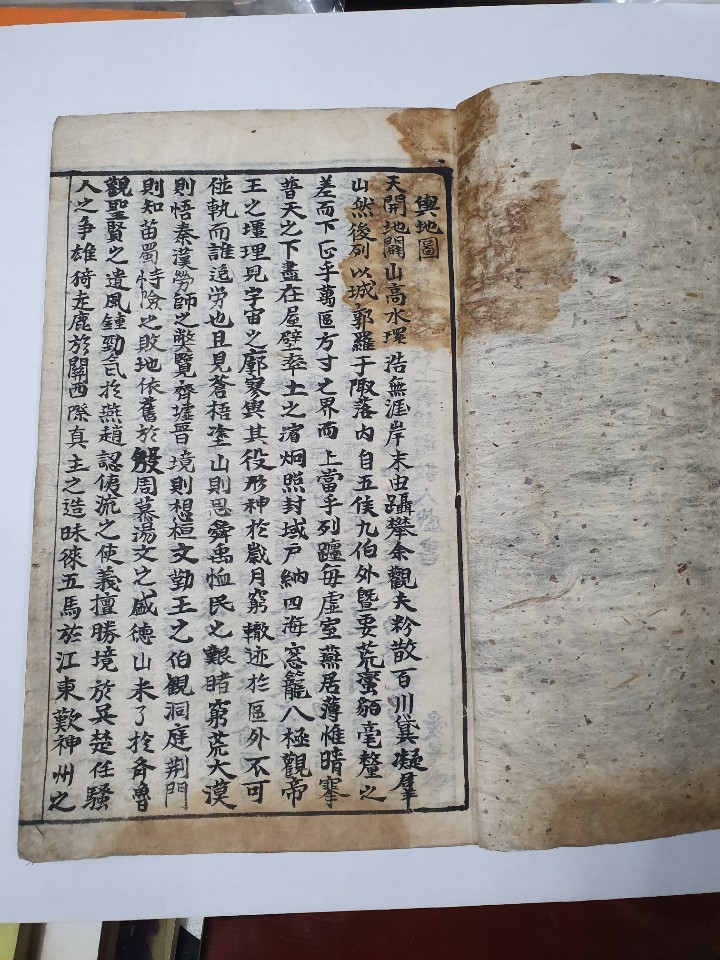 輿地圖
天開地闢山高水環浩無涯岸末由躡攀余觀夫粉散百川黛凝羣
山然後列以城郭羅于陬落內自五侯九伯外曁要荒蠻貊毫釐之
差而下正乎萬區方寸之界而上當乎列躔每虛室燕居薄惟晴搴
普天之下盡在屋壁率土之濱炯照封域戶納四海窓籠八極觀帝
王之壃理見宇宙之廓寥與其役形神於歲月窮轍迹於區外不可
並軌而誰逸勞也且見蒼梧塗山則思舜禹恤民之艱睹窮荒大漠
則悟秦漢勞師之弊覽齊墟晉境則想桓文勤王之伯観洞庭荆門
則知苗蜀恃險之敗地依舊於殷周慕湯文之盛德山未了於齊魯
觀聖賢之遺風鍾勁氣於燕趙認俠流之使義擅勝境於吳楚任騷
人之爭雄猗走鹿於關西際真主之造昧徠五馬於江東歎神州之